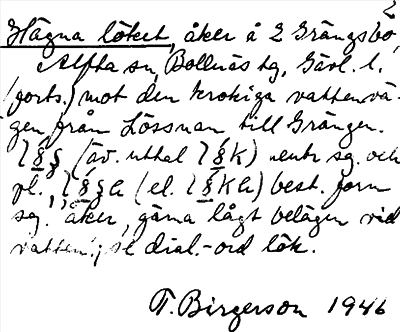 2
Hägna löket, åker å 2 Grängsbo,
Alfta sn, Bollnäs tg, Gävl. l.
(forts.) mot den krokiga vattenvä-
gen från Lössnan till Grängen.
(äv. uttal) neutr sg. och
pl., (el. best. form
sg. 'åker, gärna lågt belägen vid
vatten'; se dial.-ord lök.
T. Birgerson 1946